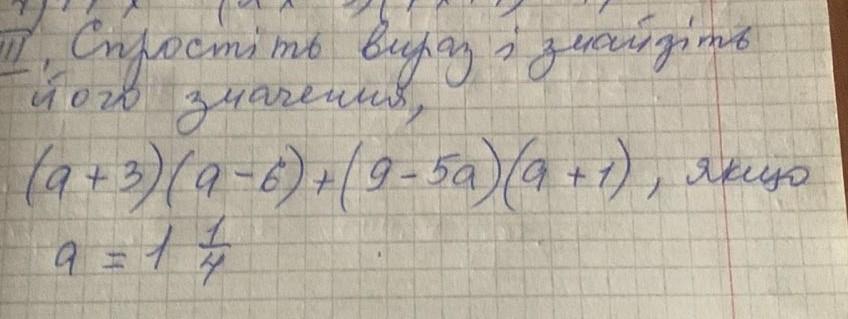 III. Спростіть вираз і знайдіть
його значення,
(a + 3)(a - 6) + (9 - 5a)(a + 1), якщо
a = 1 1/4